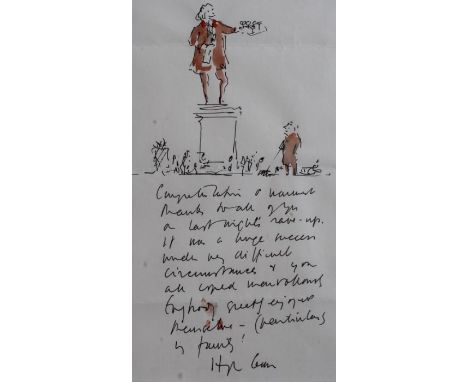 Congratulations & warmest
thanks to all of you
on last night's rave-up.
It was a huge success
under very difficult
circumstances & you
all coped marvellously
Everybody greatly enjoyed
themselves - (particularly
Hugh Casson